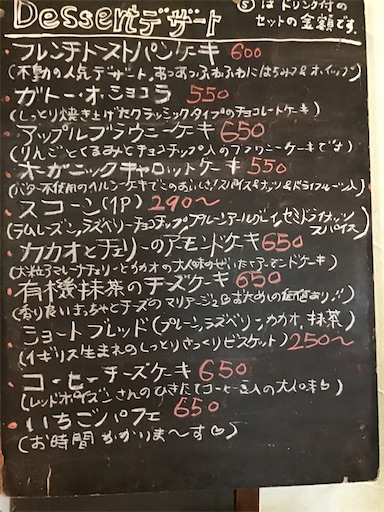 Dessertデザート
⑤はドリンク付の
セットの金額です。
フレンチトーストパンケーキ 600
(不動の人気デザート,あつあつふわふわにはちみつ&ホイップ)
ガトー・オ・ショコラ 550
(しっとり焼き上げたクラシックタイプのチョコレートケーキ)
アップルブラウニーケーキ 650
(りんごとくるみとチョコチップ入のブラウニーケーキです)
オーガニックキャロットケーキ 550
(バター不使用のケーキでこのおいしさ!スパイス&ナッツ&ドライフルーツ入)
スコーン(1P) 290〜
(ラムレーズン,ラズベリーチョコチップ,プレーン,アールグレイ,セミドライナッツ
スパイス)
カカオとチェリーのアモンドケーキ 650
(大粒チェリーとカカオの大人味のアーモンドケーキ)
有機抹茶のチーズケーキ 650
(香り良いまっちゃとチーズのマリアージュ
ショートブレッド(プレーン,ラズベリー,カカオ,抹茶)
(イギリス生まれのしっとりさっくりビスケット) 250〜
コーヒーチーズケーキ 650
(さんのひきたてコーヒー豆入の大人味♡)
いちごパフェ 650
(お時間かかりま〜す♡)